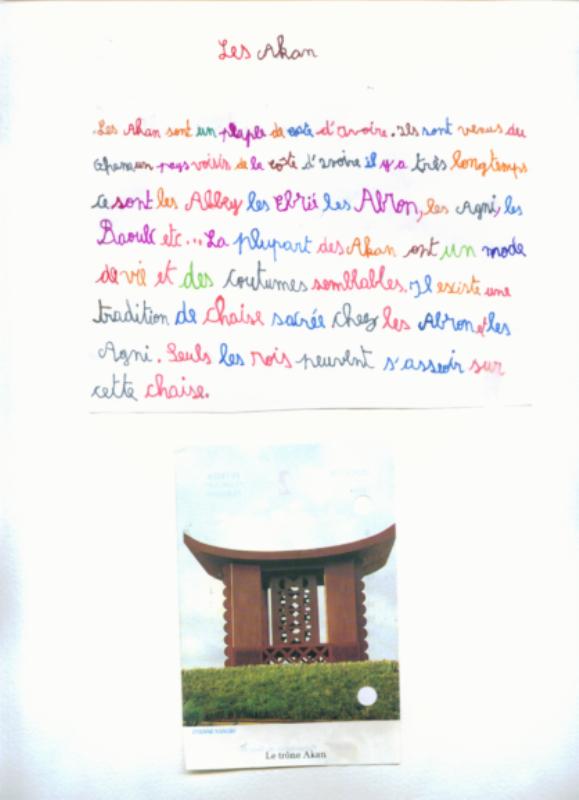 Les Akan
Les Akan sont un peuple de cote d'ivoire. Ils sont venus du
Ghana un pays voisin de la côte d'ivoire il y a très longtemps
Ce sont les Abbey les Ebrié les Abron, les Agni, les
Baoulé etc... La plupart des Akan ont un mode
de vie et des coutumes semblables. Il existe une
tradition de chaise sacrée chez les Abron et les
Agni. Seuls les rois peuvent s'asseoir sur
cette chaise.
2
Le trône Akan